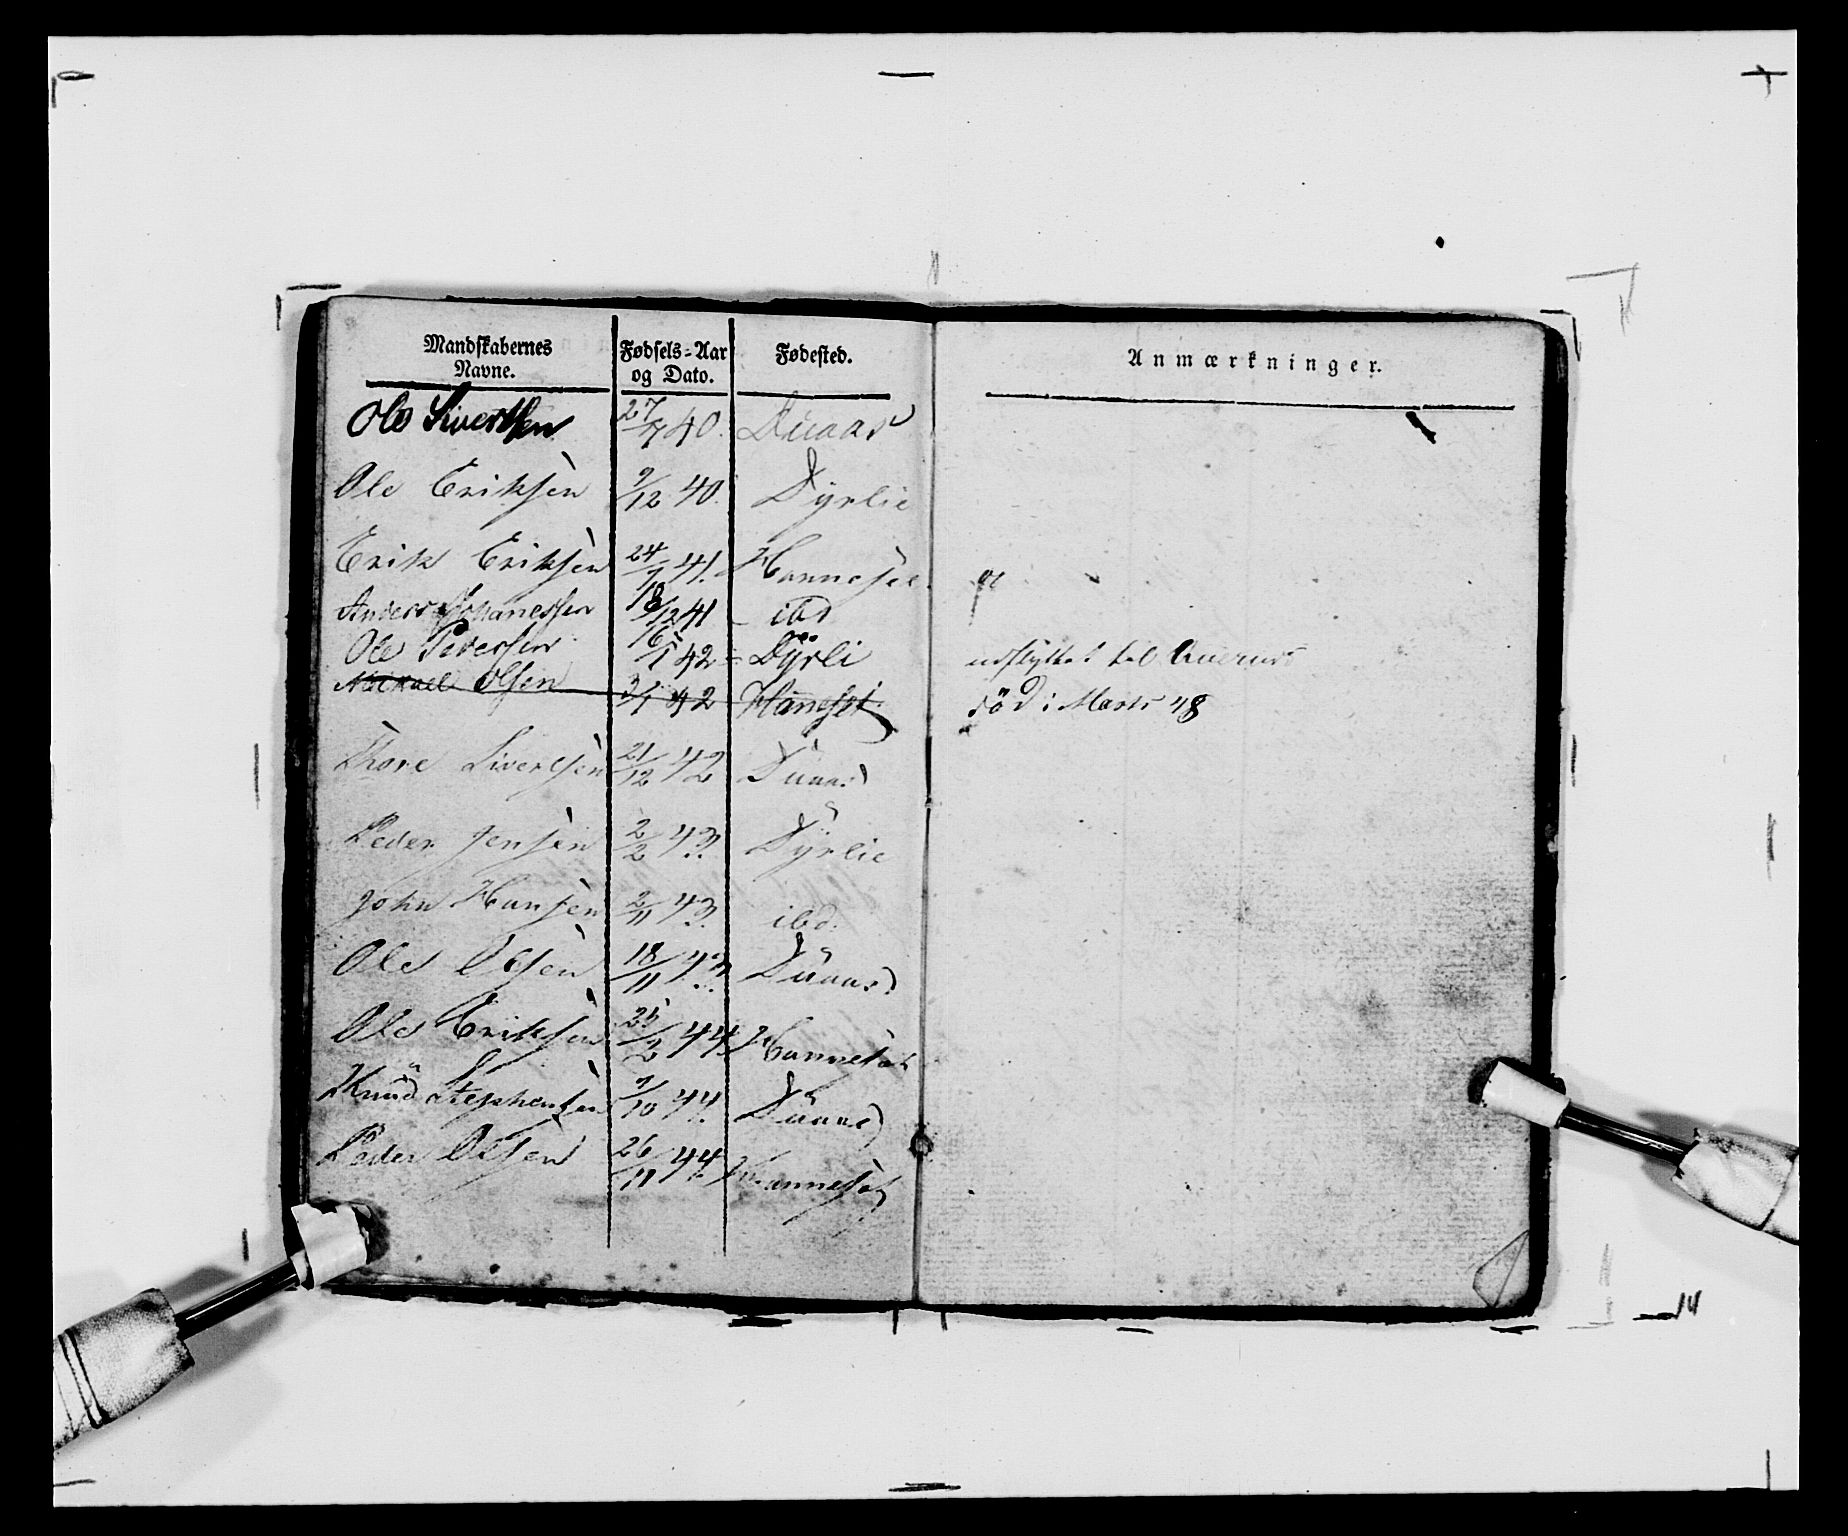 Mandskabernes Navne. Fødsels=Aar og Dato. Fødested. Anmærkninger.
Ole Sivertsen 27/7 40. Duaas
Ole Eriksen 9/12 40. Dyrlie
Erik Eriksen 24/7 41. Hanneset
Anders Johanessen 18/12 41 ibd
Ole Pedersen 16/1 42 Dÿrli udflyttet til
Mickael Olsen 3/1 42 Haneset död i Marts 48
Thore Sivertsen 21/12 42 Duaas
Peder Jensen 2/2 43. Dÿrlie
John Hansen 2/11 43. ibd.
Ole Olsen 18/11 43. Duaas
Ole Eriksen 25/2 44. Hannesæt
Knud Stephensen 9/10 44. Duaas
Peder Olsen 26/11 44. Hannesæt
14